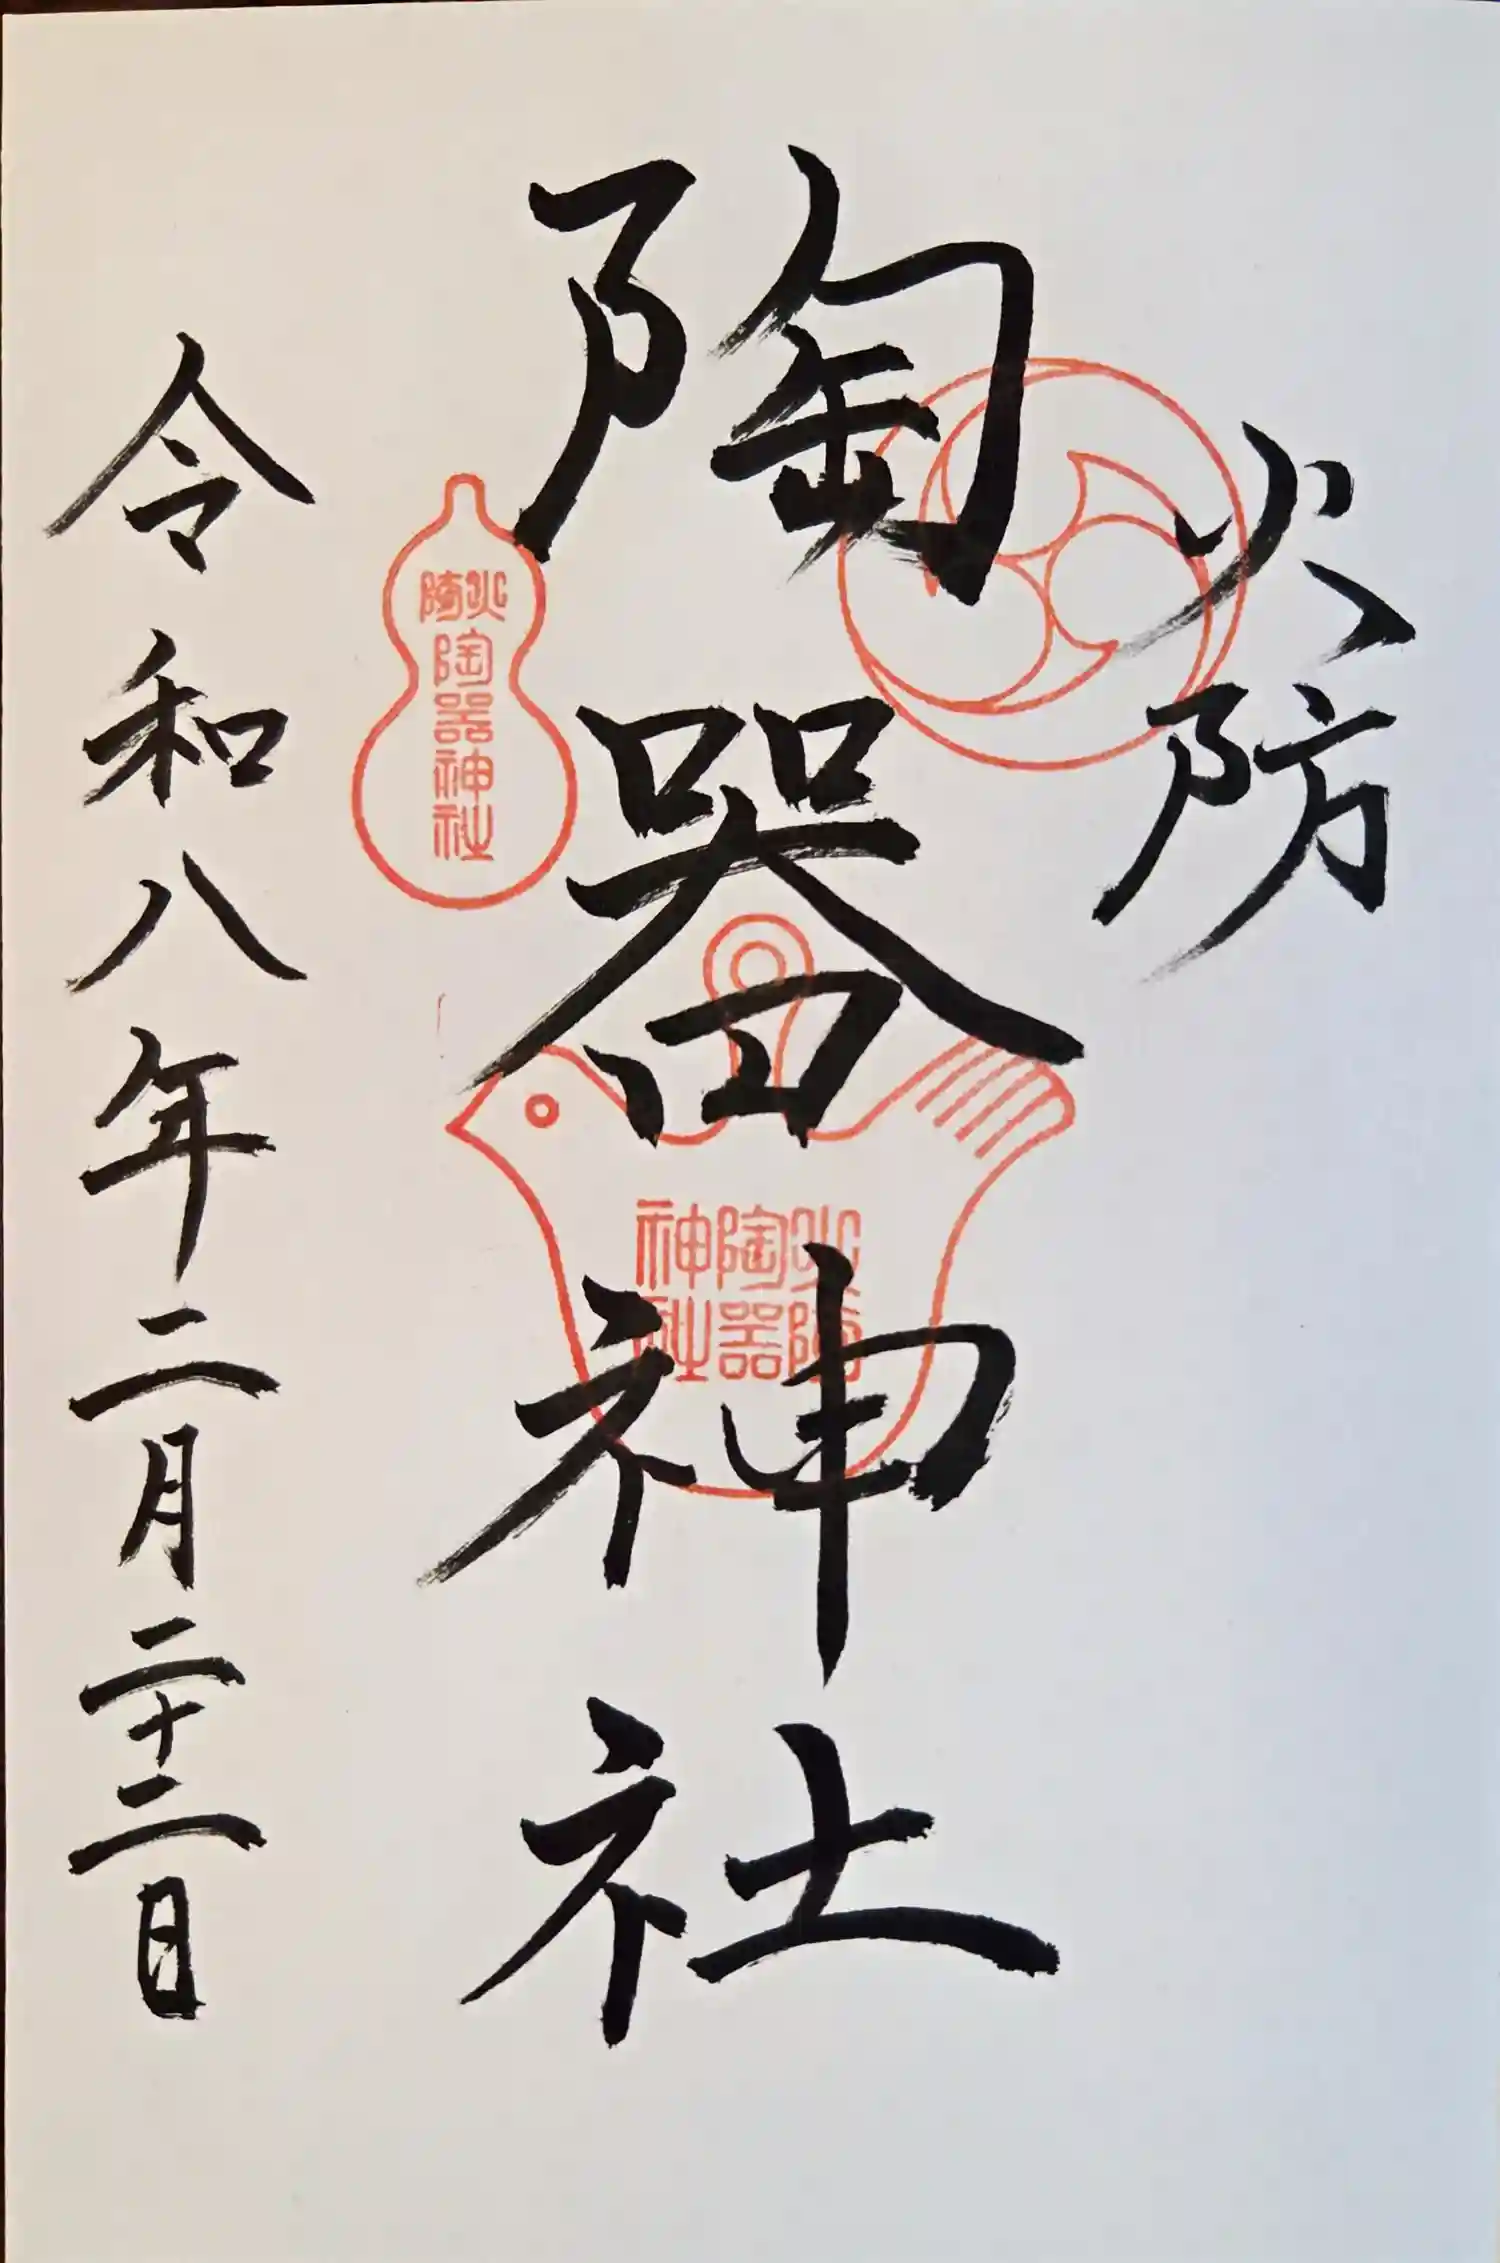 火防
陶器神社
令和八年二月二十二日
火防
陶器神社
火防
陶器
神社